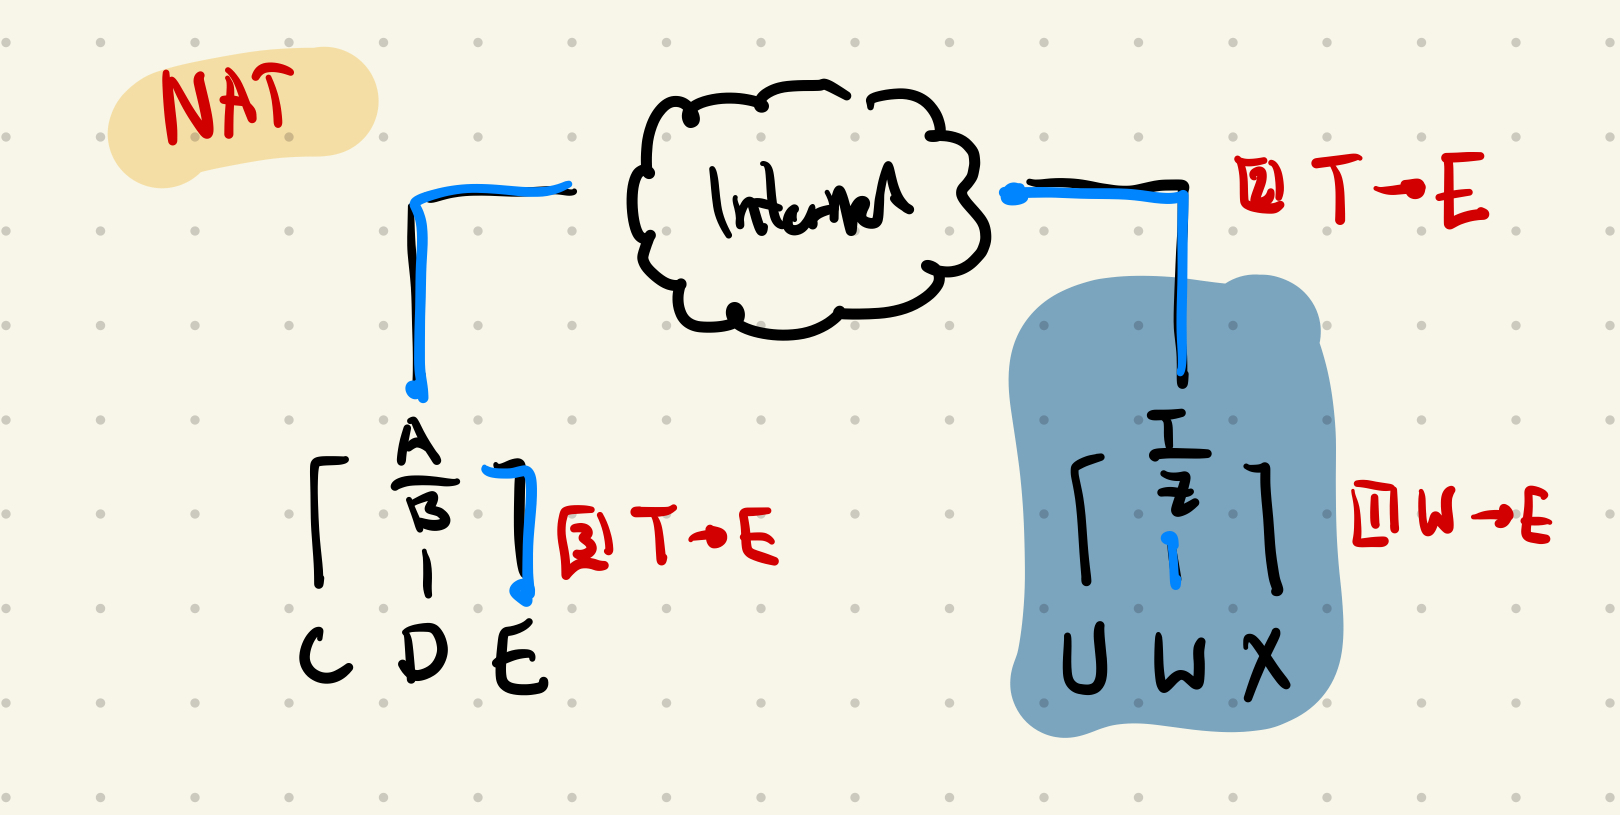 NAT
Internet
[2] T → E
A
B
T
Z
[3] T → E
[1] W → E
C D E
U W X